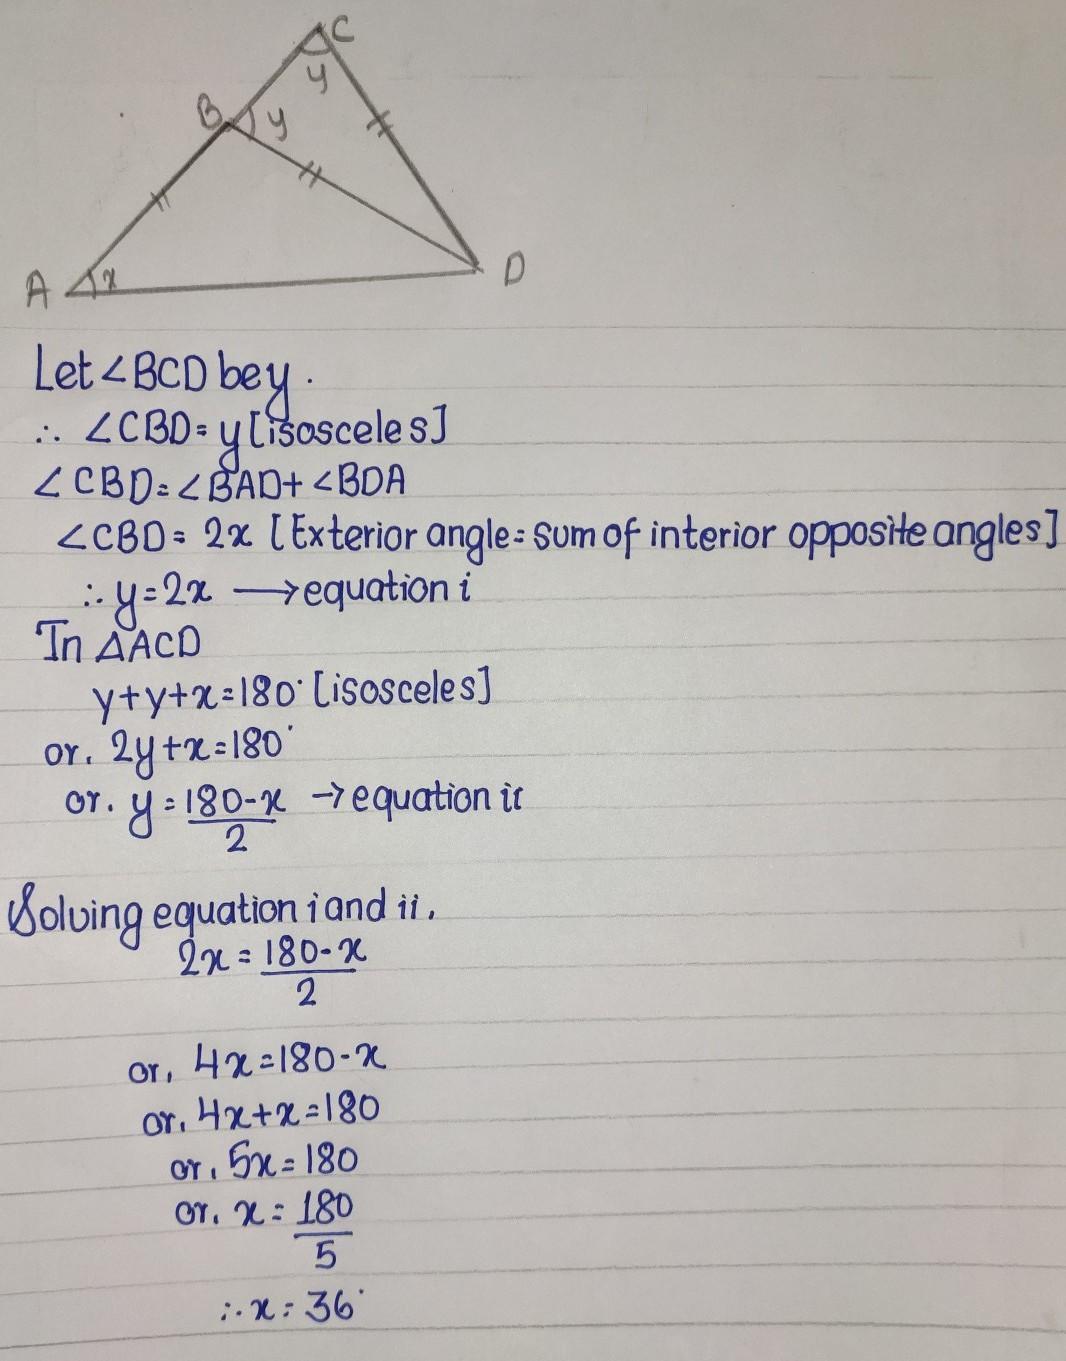 C
y
B
y
A
x
D
Let ∠BCD be y.
∴ ∠CBD = y [isosceles]
∠CBD = ∠BAD + ∠BDA
∠CBD = 2x [Exterior angle = sum of interior opposite angles]
∴ y = 2x → equation i
In △ACD
y + y + x = 180° [isosceles]
or, 2y + x = 180°
or. y = 180 - x → equation ii
2
Solving equation i and ii.
2x = 180 - x
2
or, 4x = 180 - x
or, 4x + x = 180
or, 5x = 180
or, x = 180
5
∴ x = 36°